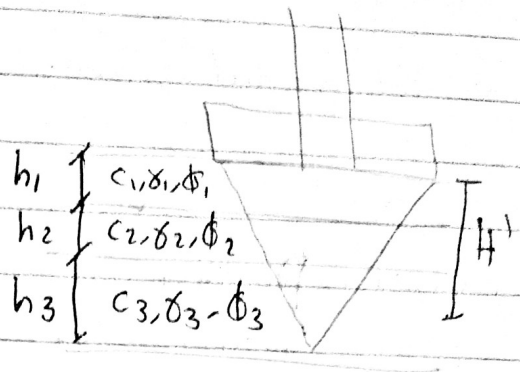 h₁ c₁,γ₁,ϕ₁
h₂ c₂,γ₂,ϕ₂ H'
h₃ c₃,γ₃-ϕ₃